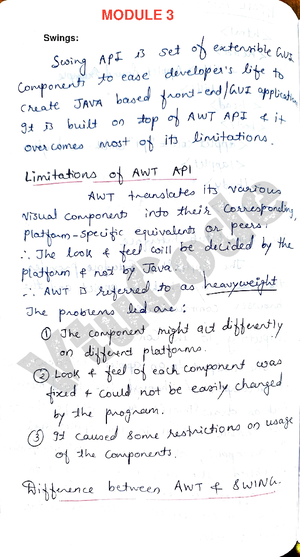 MODULE 3
Swings:
Swing API is set of extensible GUI
Components to ease developer's life to
create JAVA based front-end/GUI application
It is built on top of AWT API & it
overcomes most of its limitations.
Limitations of AWT API
AWT translates its various
visual components into their corresponding
platform-specific equivalents or peers.
∴ The look & feel will be decided by the
platform & not by Java.
∴ AWT is referred to as heavyweight
The problems led are:
① The component might act differently
on different platforms.
② Look & feel of each component was
fixed & could not be easily changed
by the program.
③ It caused some restrictions on usage
of the components.
Difference between AWT & SWING.